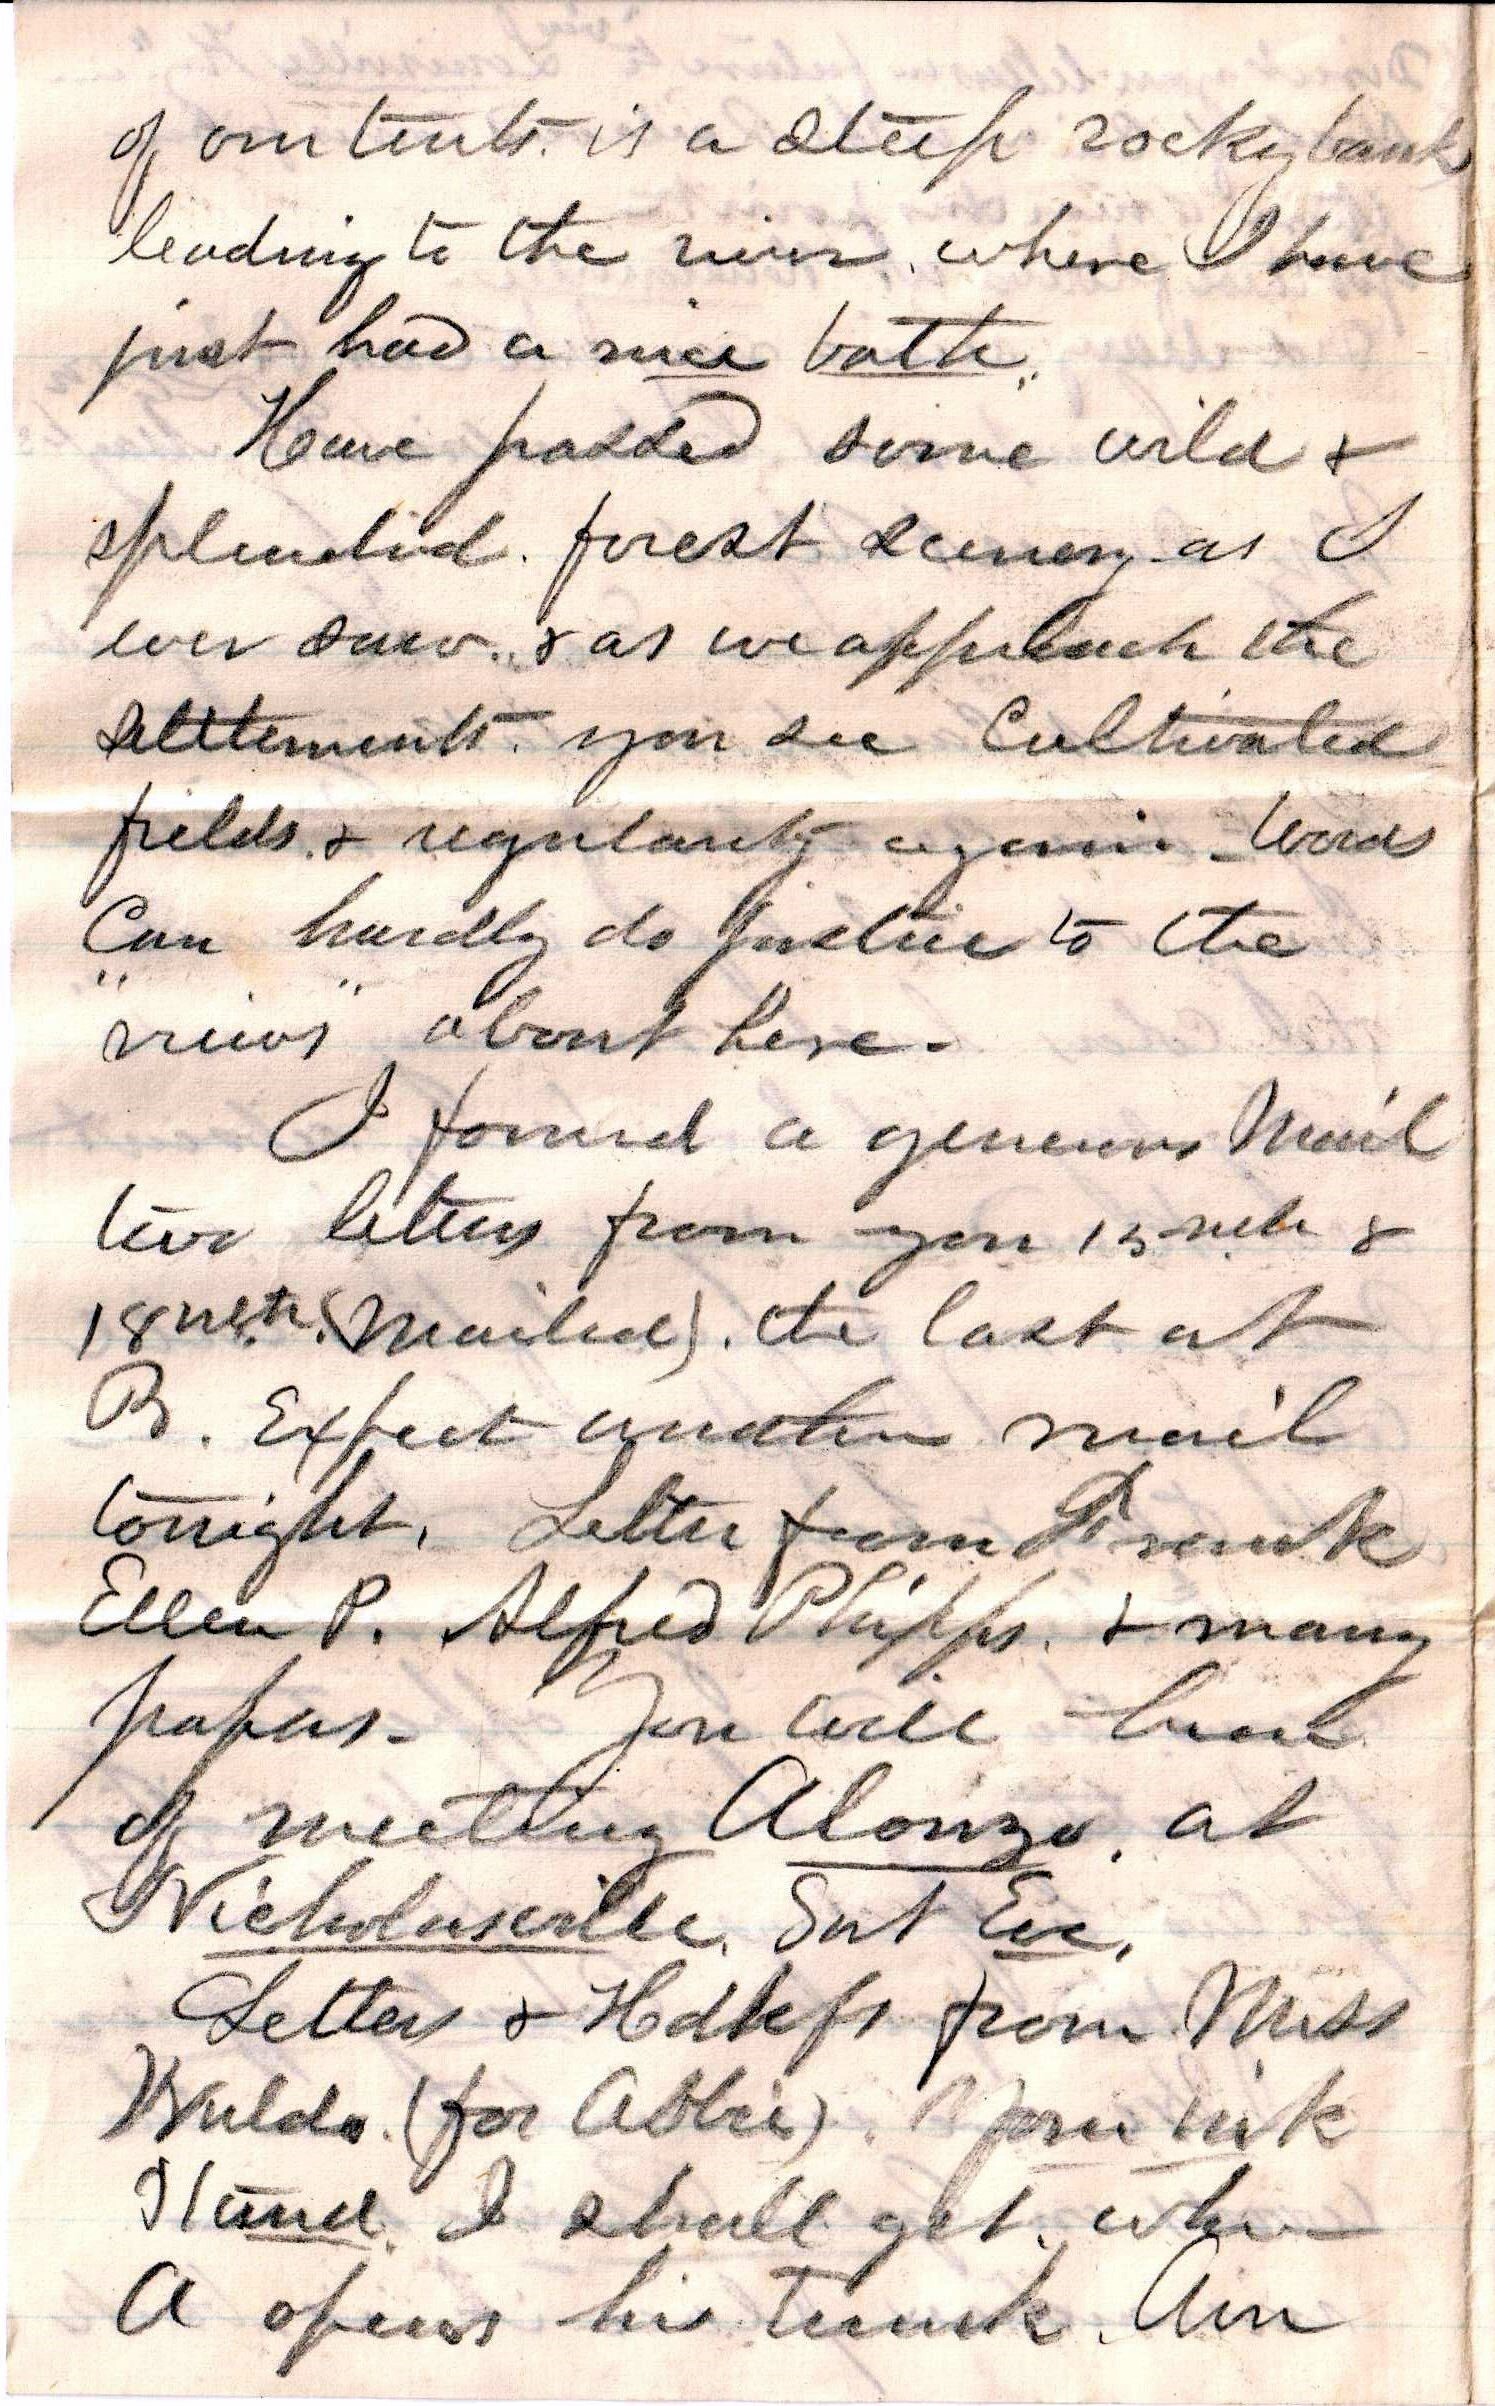 of our tents. is a steep rocky bank
leading to the river. where I have
just had a nice bath.
Have passed some wild &
splendid. forest scenery as I
ever saw. & as we approach the
settlements. you see Cultivated
fields. & regularity again. Words
Can hardly do justice to the
"views" about here.
I found a generous Mail
two letters from you 13 &
18 (Mailed). the last at
B. Expect another mail
tonight. Letter from Frank
Ellen P. Alfred Phipps. & many
papers. You will hear
of meeting Alonzo. at
Nicholasville. Sat Eve.
Letter & Hdkfs from Miss
Waldo. (for Abbie). Your ink
Stand. I shall get. when
A opens his trunk. Am